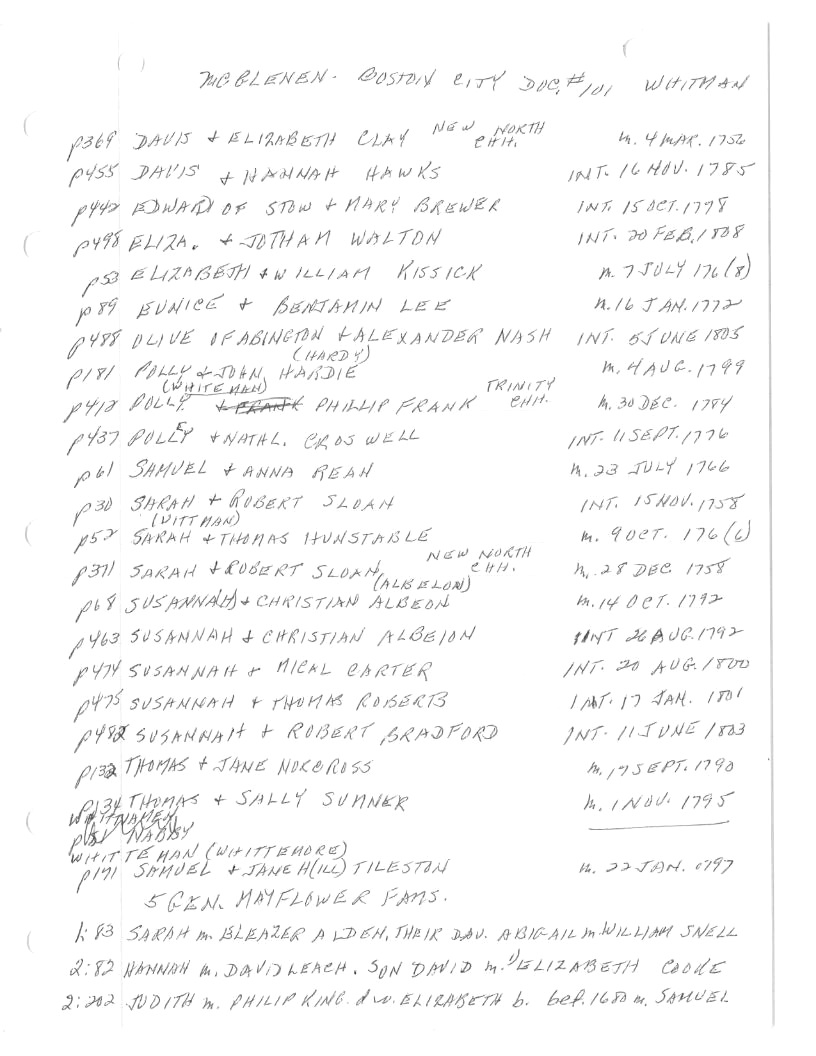 McGLENEN - BOSTON CITY DOC. #101 WHITMAN
p369 DAVIS + ELIZABETH CLAY NEW NORTH CHH. m. 4 MAR. 1756
p455 DAVIS + HANNAH HAWKS INT. 16 NOV. 1785
p442 EDWARD OF STOW + MARY BREWER INT. 15 OCT. 1778
p498 ELIZA. + JOTHAM WALTON INT. 20 FEB. 1808
p53 ELIZABETH + WILLIAM KISSICK m. 7 JULY 176(8)
p89 EUNICE + BENJAMIN LEE m. 16 JAN. 1772
p488 OLIVE OF ABINGTON + ALEXANDER NASH INT. 5 JUNE 1805
(HARDY)
p181 POLLY + JOHN HARDIE m. 4 AUG. 1799
(WHITEMAN)
p412 POLLY + FRANK PHILLIP FRANK TRINITY CHH. m. 30 DEC. 1784
p437 POLLEY + NATHL. CROSWELL INT. 11 SEPT. 1776
p61 SAMUEL + ANNA REAH m. 23 JULY 1766
p30 SARAH + ROBERT SLOAN INT. 15 NOV. 1758
(VITTMAN)
p52 SARAH + THOMAS HUNSTABLE m. 9 OCT. 176(6)
p371 SARAH + ROBERT SLOAN NEW NORTH CHH. m. 28 DEC 1758
(ALBELON)
p68 SUSANNA(H) + CHRISTIAN ALBEON m. 14 OCT. 1792
p463 SUSANNAH + CHRISTIAN ALBEION INT 26 AUG. 1792
p474 SUSANNAH + MICAL CARTER INT. 20 AUG. 1800
p475 SUSANNAH + THOMAS ROBERTS INT. 17 JAN. 1801
p482 SUSANNAH + ROBERT BRADFORD INT. 11 JUNE 1803
p132 THOMAS + JANE NORCROSS m. 17 SEPT. 1790
p134 THOMAS + SALLY SUMNER m. 1 NOV. 1795
NABBY
WHITTEMAN (WHITTEMORE)
p171 SAMUEL + JANE H(ILL) TILESTON m. 22 JAN. 1797
5 GEN. MAYFLOWER FAMS.
1:83 SARAH m. ELEAZER ALDEN. THEIR DAU. ABIGAIL m. WILLIAM SNELL
2:82 HANNAH m. DAVID LEACH. SON DAVID m. 1) ELIZABETH COOKE
2:202 JUDITH m. PHILIP KING. d w. ELIZABETH b. bef. 1680 m. SAMUEL